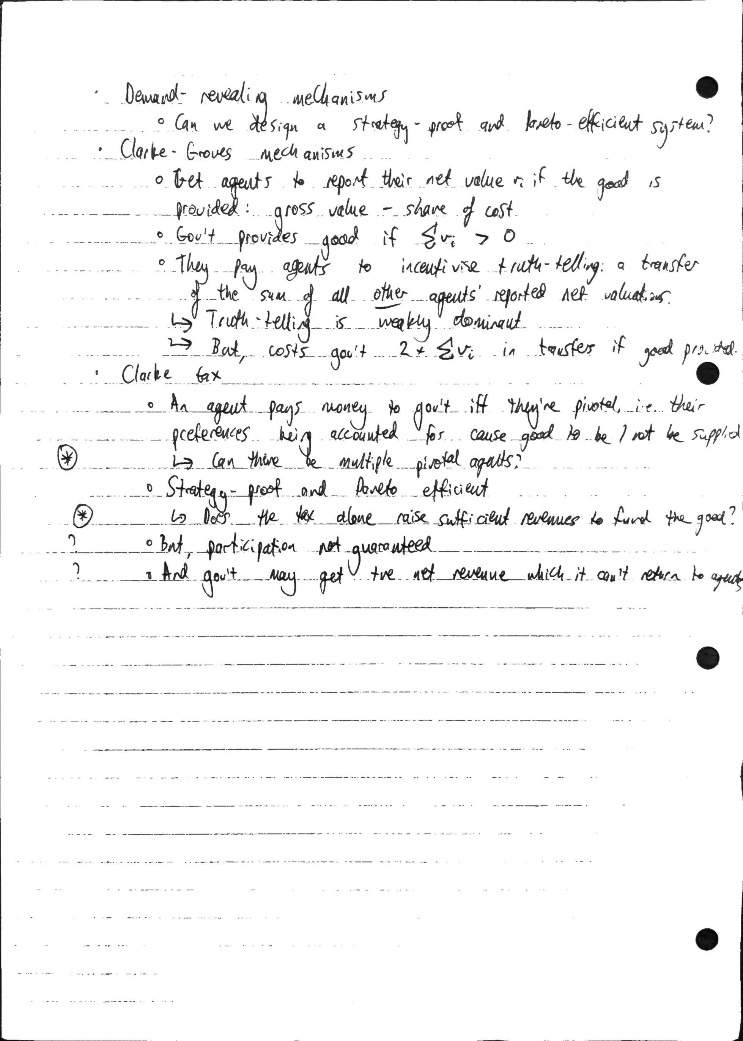 · Demand-revealing mechanisms
o Can we design a strategy-proof and Pareto-efficient system?
· Clarke-Groves mechanisms
o Get agents to report their net value vi if the good is
provided: gross value - share of cost
o Gov't provides good if Σvi > 0
o They pay agents to incentivise truth-telling: a transfer
of the sum of all other agents' reported net valuations.
↳ Truth-telling is weakly dominant
↳ But, costs gov't 2 × Σvi in transfers if good provided.
· Clarke tax
o An agent pays money to gov't iff they're pivotal, i.e. their
preferences being accounted for cause good to be / not be supplied
* ↳ Can there be multiple pivotal agents?
o Strategy-proof and Pareto efficient
* ↳ Does the tax alone raise sufficient revenues to fund the good?
? o But, participation not guaranteed
? o And gov't may get +ve net revenue which it can't return to agents